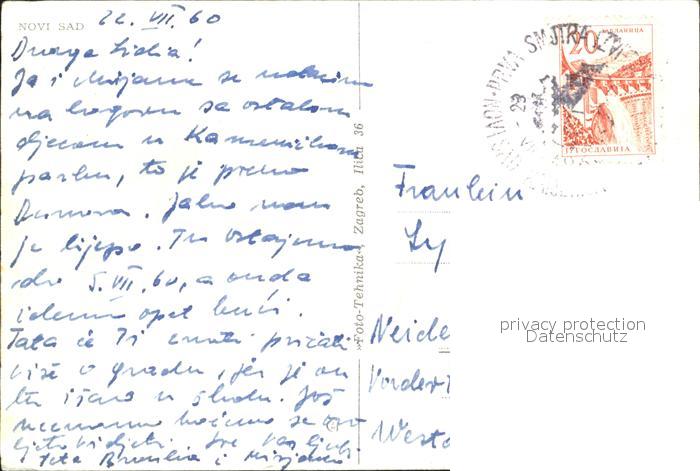 NOVI SAD 22. VII. 60
Draga Lidia!
Ja i Mirjana se nalazimo
na logoru sa ostalom
djecom u Kameničkom
parku, to je preko
Dunava. Jako nam
je lijepo. Tu ostajemo
do 5. VII. 60, a onda
idemo opet kući.
Tata će Ti znati pričati
više o gradu, jer je on
tu išao u školu. Još
ne znamo hoćemo se ovo
ljeto vidjeti. Sve Vas ljubi
Teta i Mirjana
»Foto-Tehnika«, Zagreb, Ilica 36
20 ЈАБЛАНИЦА
ЈУГОСЛАВИЈА
PRVA SMOTRA
Fraulein
Ly
Neide
Vorder
Westo
privacy protection
Datenschutz